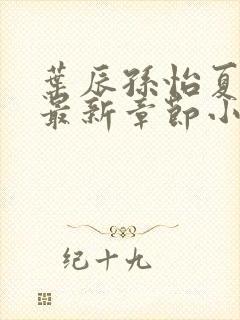 葉辰孫怡夏
最新章節小
纪十九